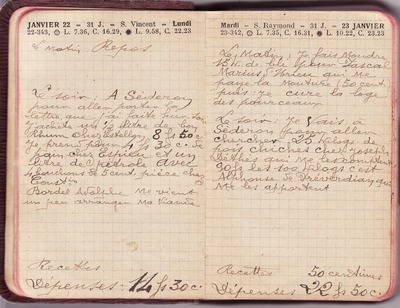 JANVIER 22 — 31 J. - S. Vincent - Lundi
22-343, ☉ L. 7.36, C. 16.29, ● L. 9.58, C. 22.23
Le matin Repos
Le soir: A Séderon
pour allen porter la
lettre que j'ai faite
j'achète un litre de bon
Rhum chez Estellon 8 fs 50 c.
Je prend pour 4 fs 30 c. de
pain chez Espieu et un
litre de Pétrole avec
4 bouchons à 5 cent. pièce chez
Const
Bordel Adolphe me vient
un peu arranger ma viande
Recettes
Dépenses: 14 fs 30 c.
Mardi - S Raymond - 31 J. — 23 JANVIER
23-342, ☉ L. 7.35, C. 16.31, C. 23.23
Le Matin, Je fais Moudre
15 k. de blé pour Pascal
Marius, qui me
paye la Mouture (50 cent.)
puis je cure la loge
des pourceaux
Le soir: Je vais à
Séderon pour allen
chercher 25 kilogs. de
pois chiches chez Joseph
qui me les compte
90 fs les 100 kilogs c'est
Alphonse de qui
me les apportent
Recettes 50 centimes
Dépenses 22 fs 50 c.